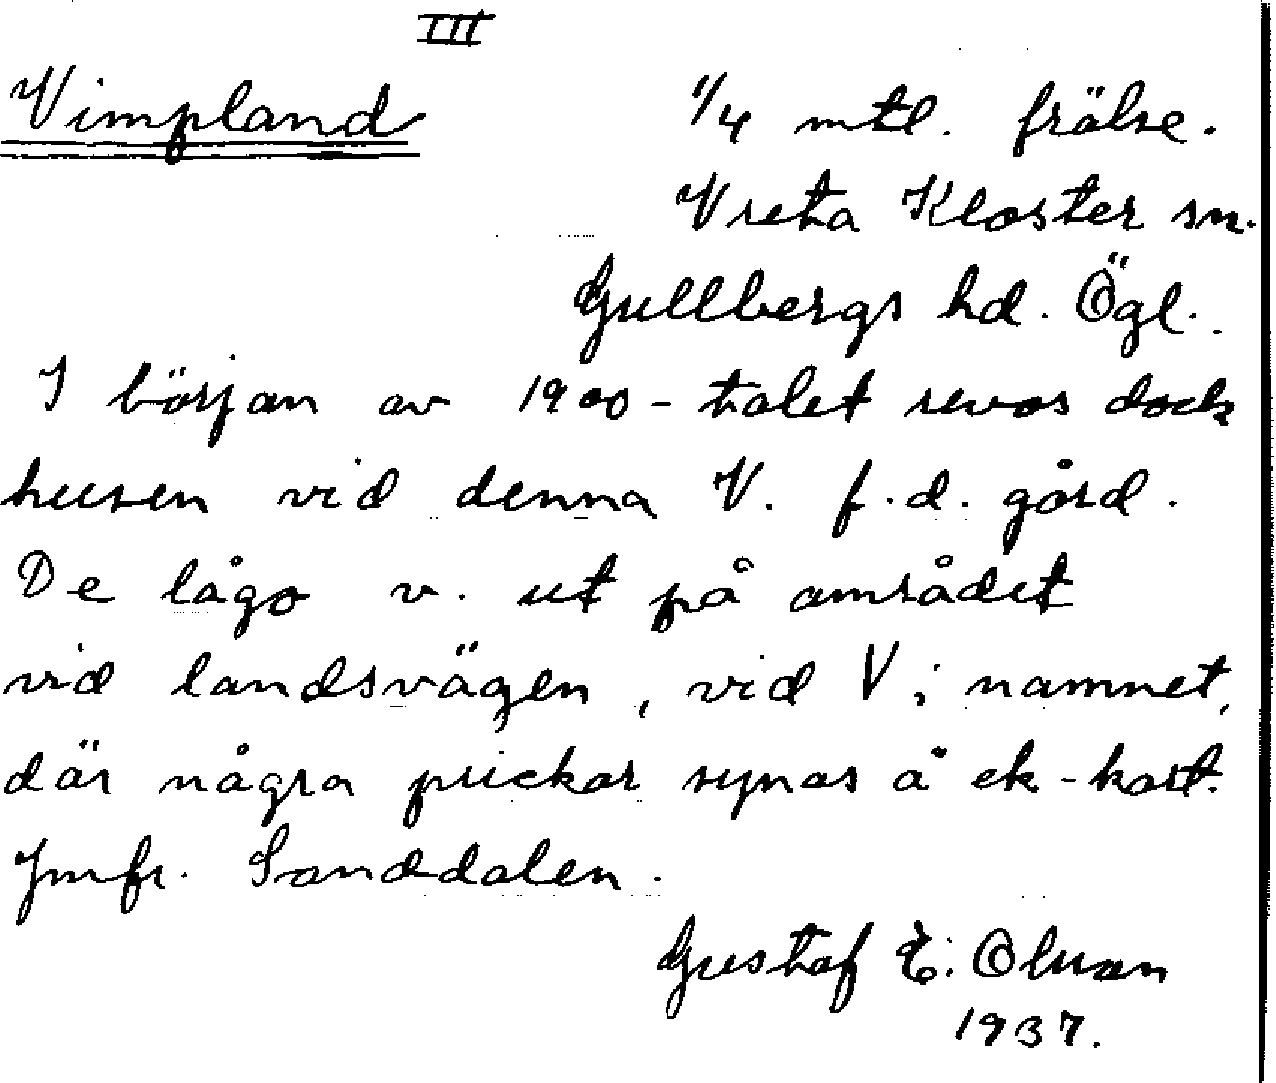 III
Vimpland 1/4 mtl. frälse.
Vreta Kloster sn.
Gullbergs hd. Ögl.
I början av 1900-talet revos dock
husen vid denna V. f.d. gård.
De lågo v. ut på området
vid landsvägen, vid V i namnet,
där några prickar synas å ek-kart.
Jmfr. Sanddalen.
Gustaf E. Olsson
1937.